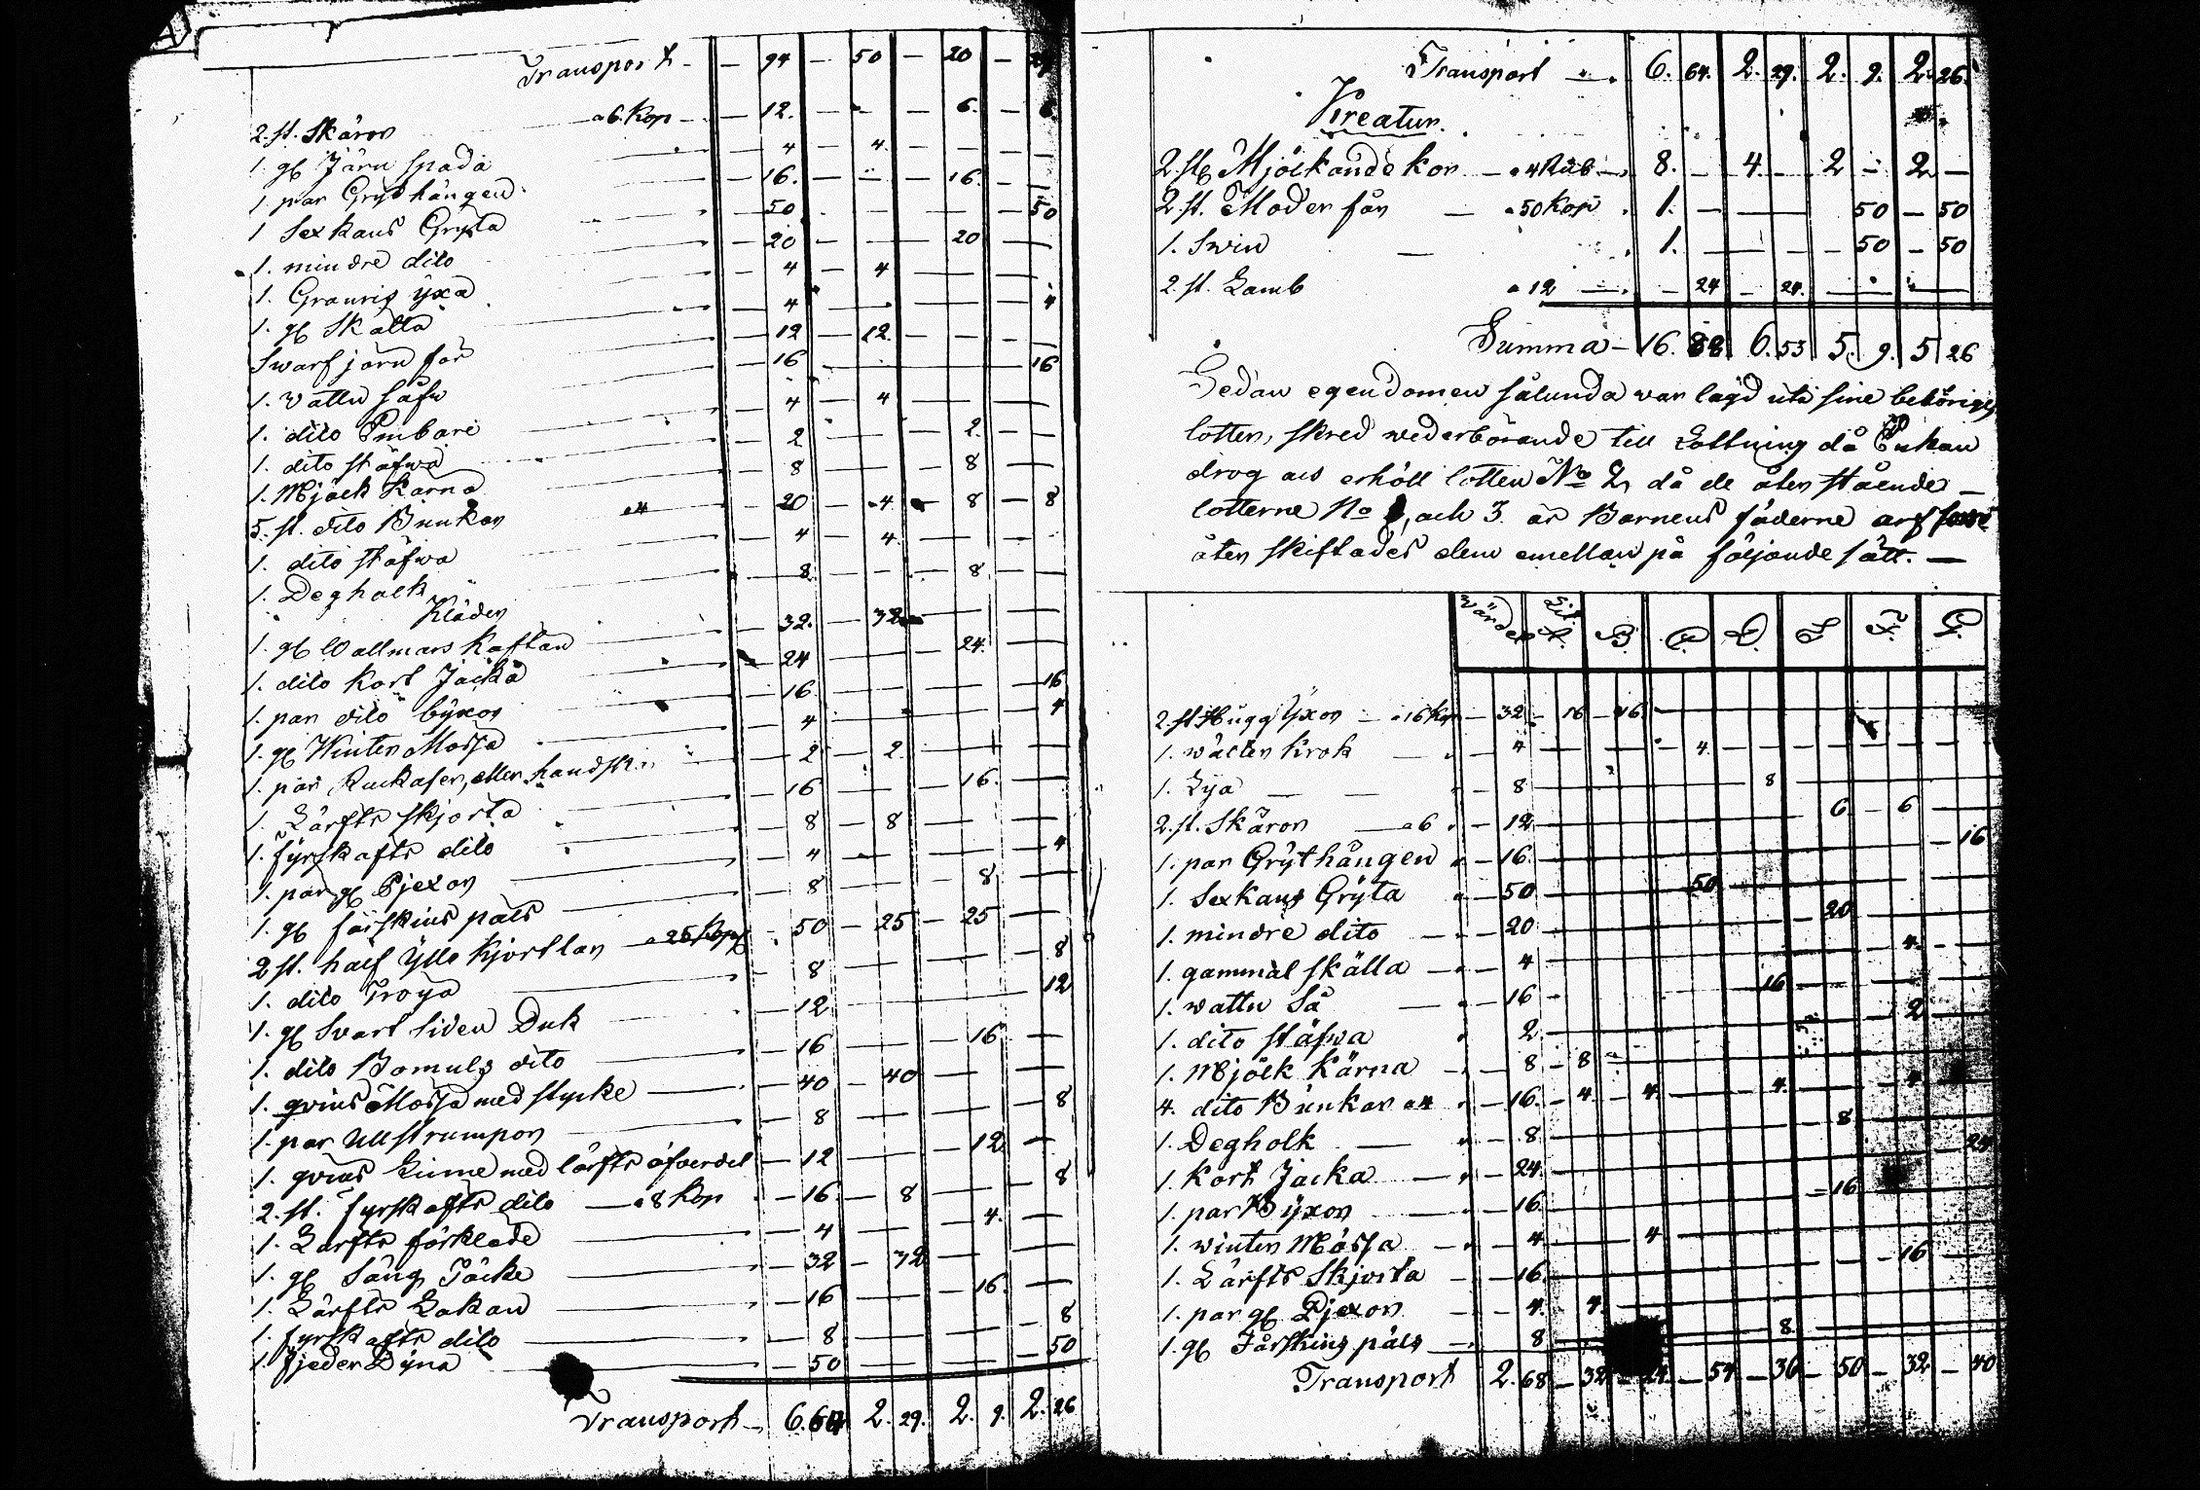 Transport - - 94 - 50 - 20 - 24
2. st. Skäror - a 6. Kop - 12. - - - 6. - 6.
1. gl Järn spada - 4 - 4. - - -
1. par Grythängen - 16. - - - 16. - -
1 Sexkans Gryta - 50 - - - 50
1. mindre dito - 20 - - - 20 - -
1. Granris yxa - 4 - 4 - - -
1. gl Skälla - 4 - - - 4
Swarfjärn för - 12 - 12. - - -
1. Vattu såfw - 16 - - - 16
1. dito Embare - 4 - 4 - - -
1. dito stäfwa - 2 - - 2. -
1. Mjölk Kärna - 8 - - 8 -
5. st. dito Bunkar a 4 - 20 - 4. - 8 - 8
1. dito stäfwa - 4 - 4. - -
1. Degholk - 8. - - 8 - -
Kläder
1. gl Wallmars Kaftan - 32. - 32 - -
1. dito kort Jacka - 24 - - 24. -
1. par dito byxor - 16 - - - 16
1. gl Winter Mössa - 4 - - - 4
1. par Ruckaser, eller handsk - 2 - 2. - -
1. Lärfts skjorta - 16 - - 16. -
1. fyrskafts dito - 8 - 8 - -
1. par gl Pjexor - 4 - - - 4
1. gl fårskins päls - 8 - - 8 -
2 st. half Ylle Kjortlar a 25 Kop - 50 - 25 - 25 -
1. dito Tröya - 8 - - - 8
1. gl Svart Siden Duk - 12 - - - 12
1. dito Bomuls dito - 16 - - 16 -
1. qvins Mössa med stycke - 40 - 40 - -
1. par Ullstrumpor - 8 - - - 8
1. qvins Linne med lärfts öfverdel - 12 - - 12 -
2. st. fyrskafts dito a 8 Kop - 16. - 8 - - 8
1. Lärfts förkläde - 4 - - 4. -
1. gl Säng Täcke - 32 - 32 - -
1. Lärfts Lakan - 16 - - 16. -
1. fyrskafts dito - 8 - - - 8
1. fjeder Dyna - 50 - - - 50
Transport - 6. 64 2. 29. 2. 9. 2. 26
Transport - 6. 64. 2. 29. 2. 9. 2. 26.
Kreatur.
2. st. Mjölkande kor - a 4 Rub - 8. - 4. - 2 - 2 -
2. st. Moder får - a 50 Kop - 1. - - - 50 - 50
1. Swin - 1. - - - 50 - 50
2. st. Lamb a 12 - - 24 - 24. - - - -
Summa - 16. 88 6. 53 5. 9. 5 26
Sedan egendomen sålunda war lagd uti sine behörige
lotter, skred wederbörande till Lottning då Enkan
drog och erhöll lotten No 2, då de åter stående -
lotterne No 1, och 3. är Barnens fäderne arf
åter skiftades dem emellan på följande sätt. -
Wärde Litt A. B. C. D. E. F. G.
2. st Hugg Yxor - a 16 Kop - 32 - 16 - 16. -
1. wälter Krok - 4 - - - 4. -
1. Lya - - 8 - - 8 -
2. st. Skäror - a 6 - 12 - - 6 - 6 -
1. par Grythängen - 16. - - 16
1. Sexkans Gryta - 50 - 50 -
1. mindre dito - 20 - - 20 -
1. gammal skälla - 4 - - 4. -
1. wattu Så - 16 - - 16 -
1. dito stäfwa 2. - - 2 -
1. Mjölk Kärna - 8 - 8 -
4. dito Bunkar a 4 - 16. - 4. - 4. - 4. - 4
1. Degholk - 8 - - 8. -
1. Kort Jacka - 24. - - 24
1. par Byxor - 16. - - 16. -
1. winter Mössa - 4 - 4 -
1. Lärfts Skjorta - 16. - - 16 -
1. par gl Pjexor - 4. - 4. -
1. gl Fårskins päls - 8 - - 8. -
Transport 2. 68 - 32 - 24. - 54 - 36 - 50 - 32 - 40